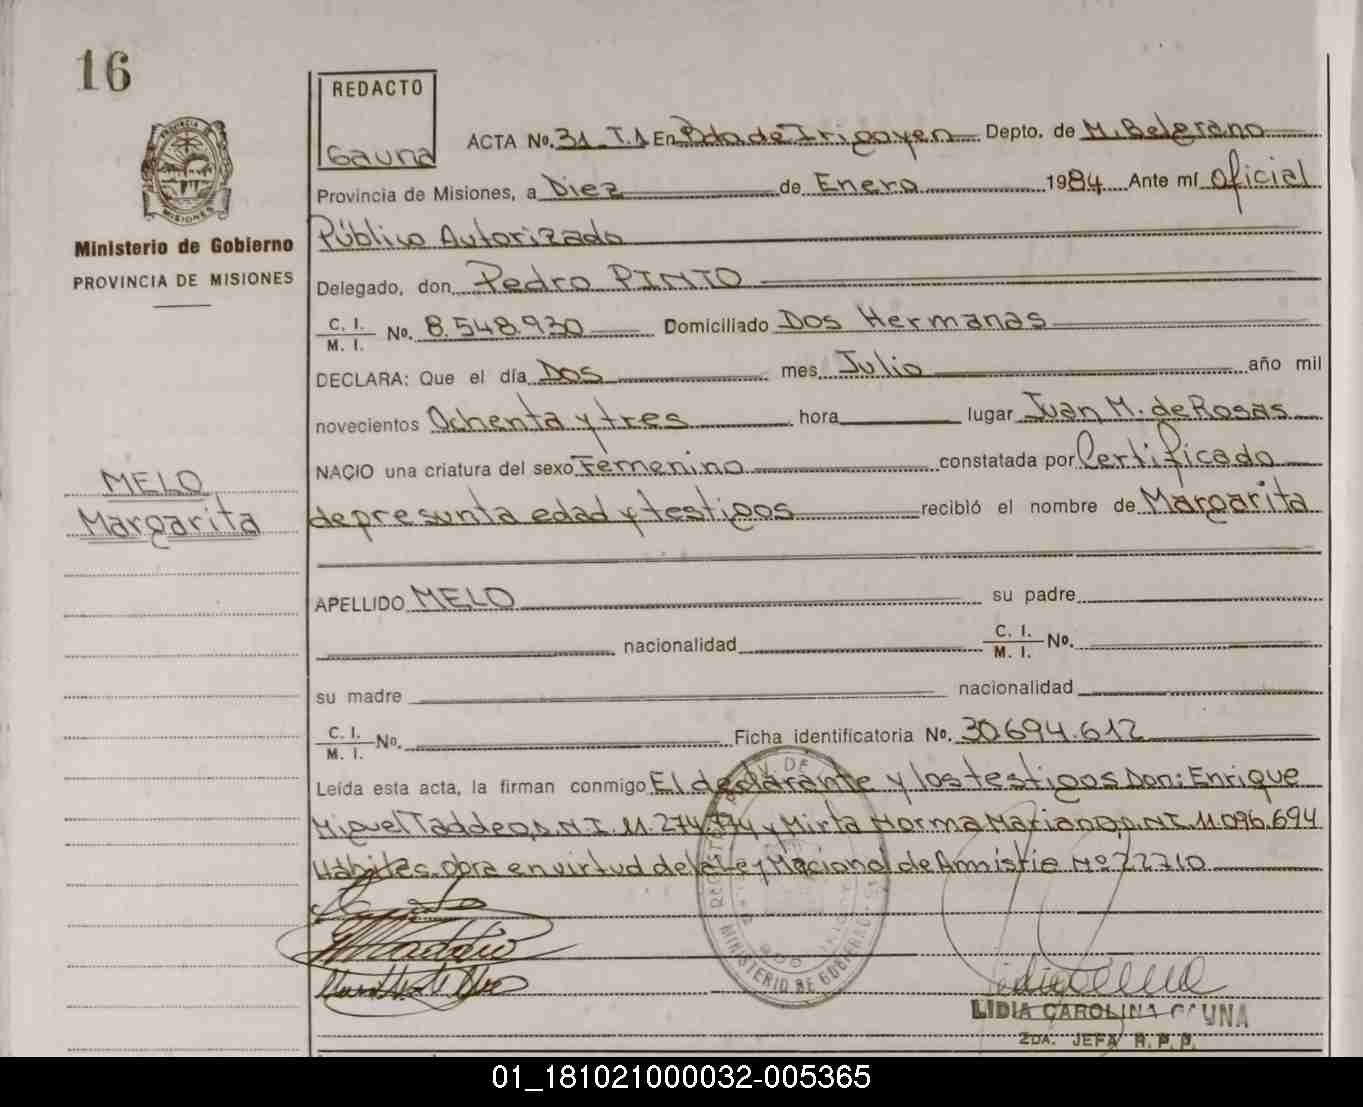 16
REDACTO
Gauna
ACTA No. 31 T.1 En Bdo de Irigoyen Depto. de M. Belgrano
Provincia de Misiones, a Diez de Enero 1984 Ante mí Oficial
Ministerio de Gobierno
PROVINCIA DE MISIONES
Público Autorizado
Delegado, don Pedro PINTO
C. I.
M. I. No. 8.548.930 Domiciliado Dos Hermanas
DECLARA: Que el día Dos mes Julio año mil
novecientos Ochenta y tres hora lugar Juan M. de Rosas
NACIO una criatura del sexo Femenino constatada por Certificado
MELO
Margarita
de presunta edad y testigos recibió el nombre de Margarita
APELLIDO MELO su padre
nacionalidad C. I.
M. I. No.
su madre nacionalidad
C. I.
M. I. No. Ficha identificatoria No. 30.694.612
Leída esta acta, la firman conmigo El declarante y los testigos Don: Enrique
Miguel Taddeo, D.N.I. 11.274.774 y Mirta Norma Mariano, D.N.I. 11.096.694
Hábiles. Obra en virtud de la Ley Nacional de Amnistía Nº 22710
MINISTERIO DE GOBIERNO
LIDIA CAROLINA GAUNA
2DA. JEFA R.P.P.
01_181021000032-005365